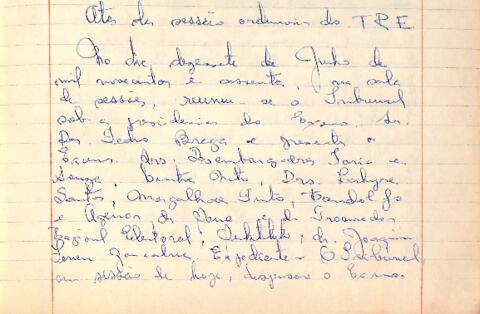 Ata da sessão ordinária do TRE
No dia dezessete de Junho de
mil novecentos e sessenta, na sala
de sessões, reuniu-se o Tribunal
sob a presidencia do Exmo. Sr.
Des. Pedro Braga e presente o
Exmos. Drs. Desembargadores Faria e
Souza, Drs.
Santos, Magalhães Pinto,
e e do Procurador
Regional Eleitoral, Substituto, dr. Joaquim
Expediente - O Tribunal
em sessão de hoje, dispensou o Exmo.